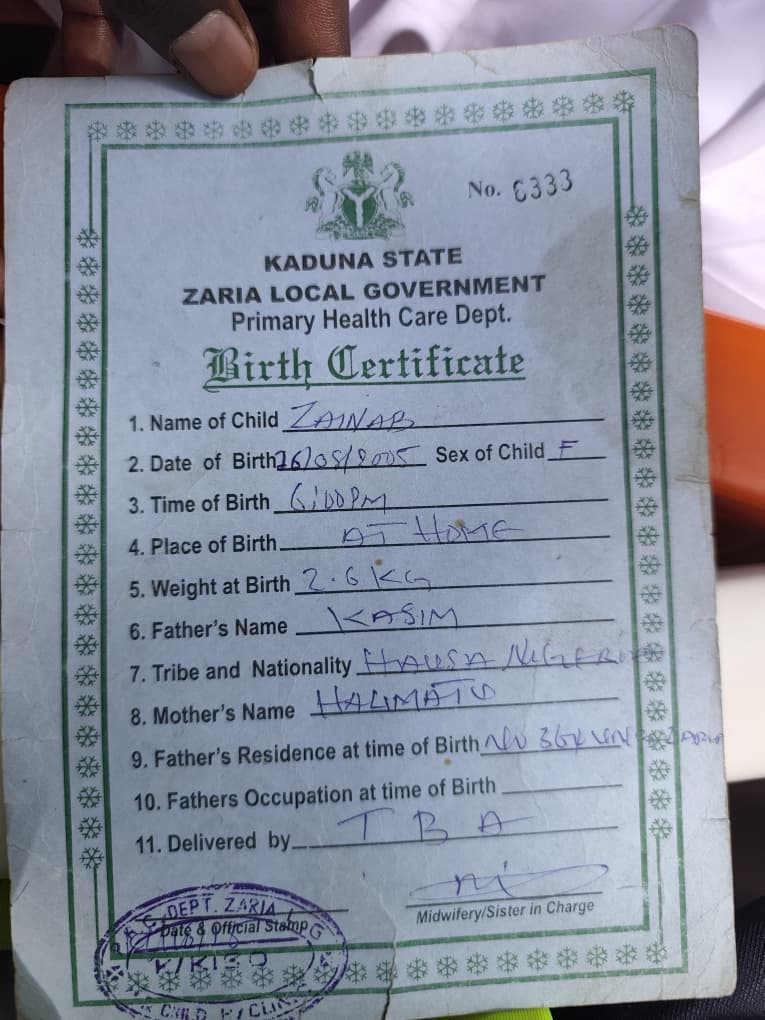 No. 6333
KADUNA STATE
ZARIA LOCAL GOVERNMENT
Primary Health Care Dept.
Birth Certificate
1. Name of Child ZAINAB
2. Date of Birth 26/05/2005 Sex of Child F
3. Time of Birth 6:00PM
4. Place of Birth AT HOME
5. Weight at Birth 2.6KG
6. Father's Name KASIM
7. Tribe and Nationality HAUSA NIGERIA
8. Mother's Name HALIMATU
9. Father's Residence at time of Birth NO ZARIA
10. Fathers Occupation at time of Birth
11. Delivered by TBA
Midwifery/Sister in Charge
DEPT. ZARIA
Date & Official Stamp